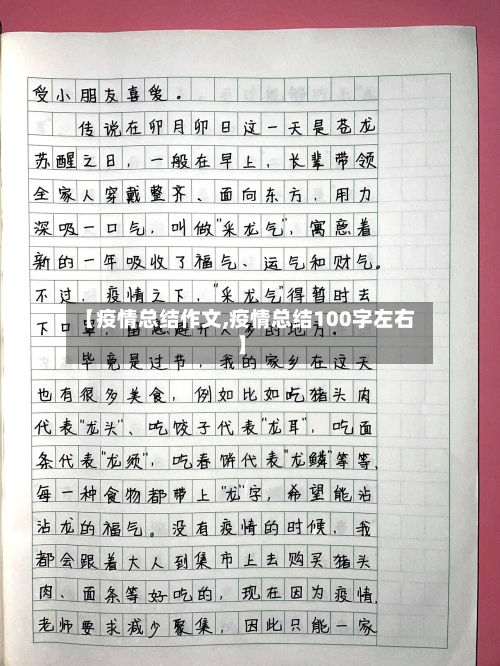 受小朋友喜爱。
传说在卯月卯日这一天是苍龙
苏醒之日，一般在早上，长辈带领
全家人穿戴整齐、面向东方，用力
深吸一口气，叫做"采龙气"，寓意着
新的一年吸收了福气、运气和财气。
不过，疫情之下，"采龙气"得暂时去
下口罩，留意避开人多的地方。
【疫情总结作文,疫情总结100字左右
】
毕竟是过节，我的家乡在这天
也有很多美食，例如比如吃猪头肉
代表"龙头"、吃饺子代表"龙耳"，吃面
条代表"龙须"，吃春饼代表"龙鳞"等等，
每一种食物都带上"龙"字，希望能沾
沾龙的福气。没有疫情的时候，我
都会跟着大人到集市上去购买猪头
肉、面条等好吃的，现在因为疫情，
老师要求减少聚集，因此只能一家